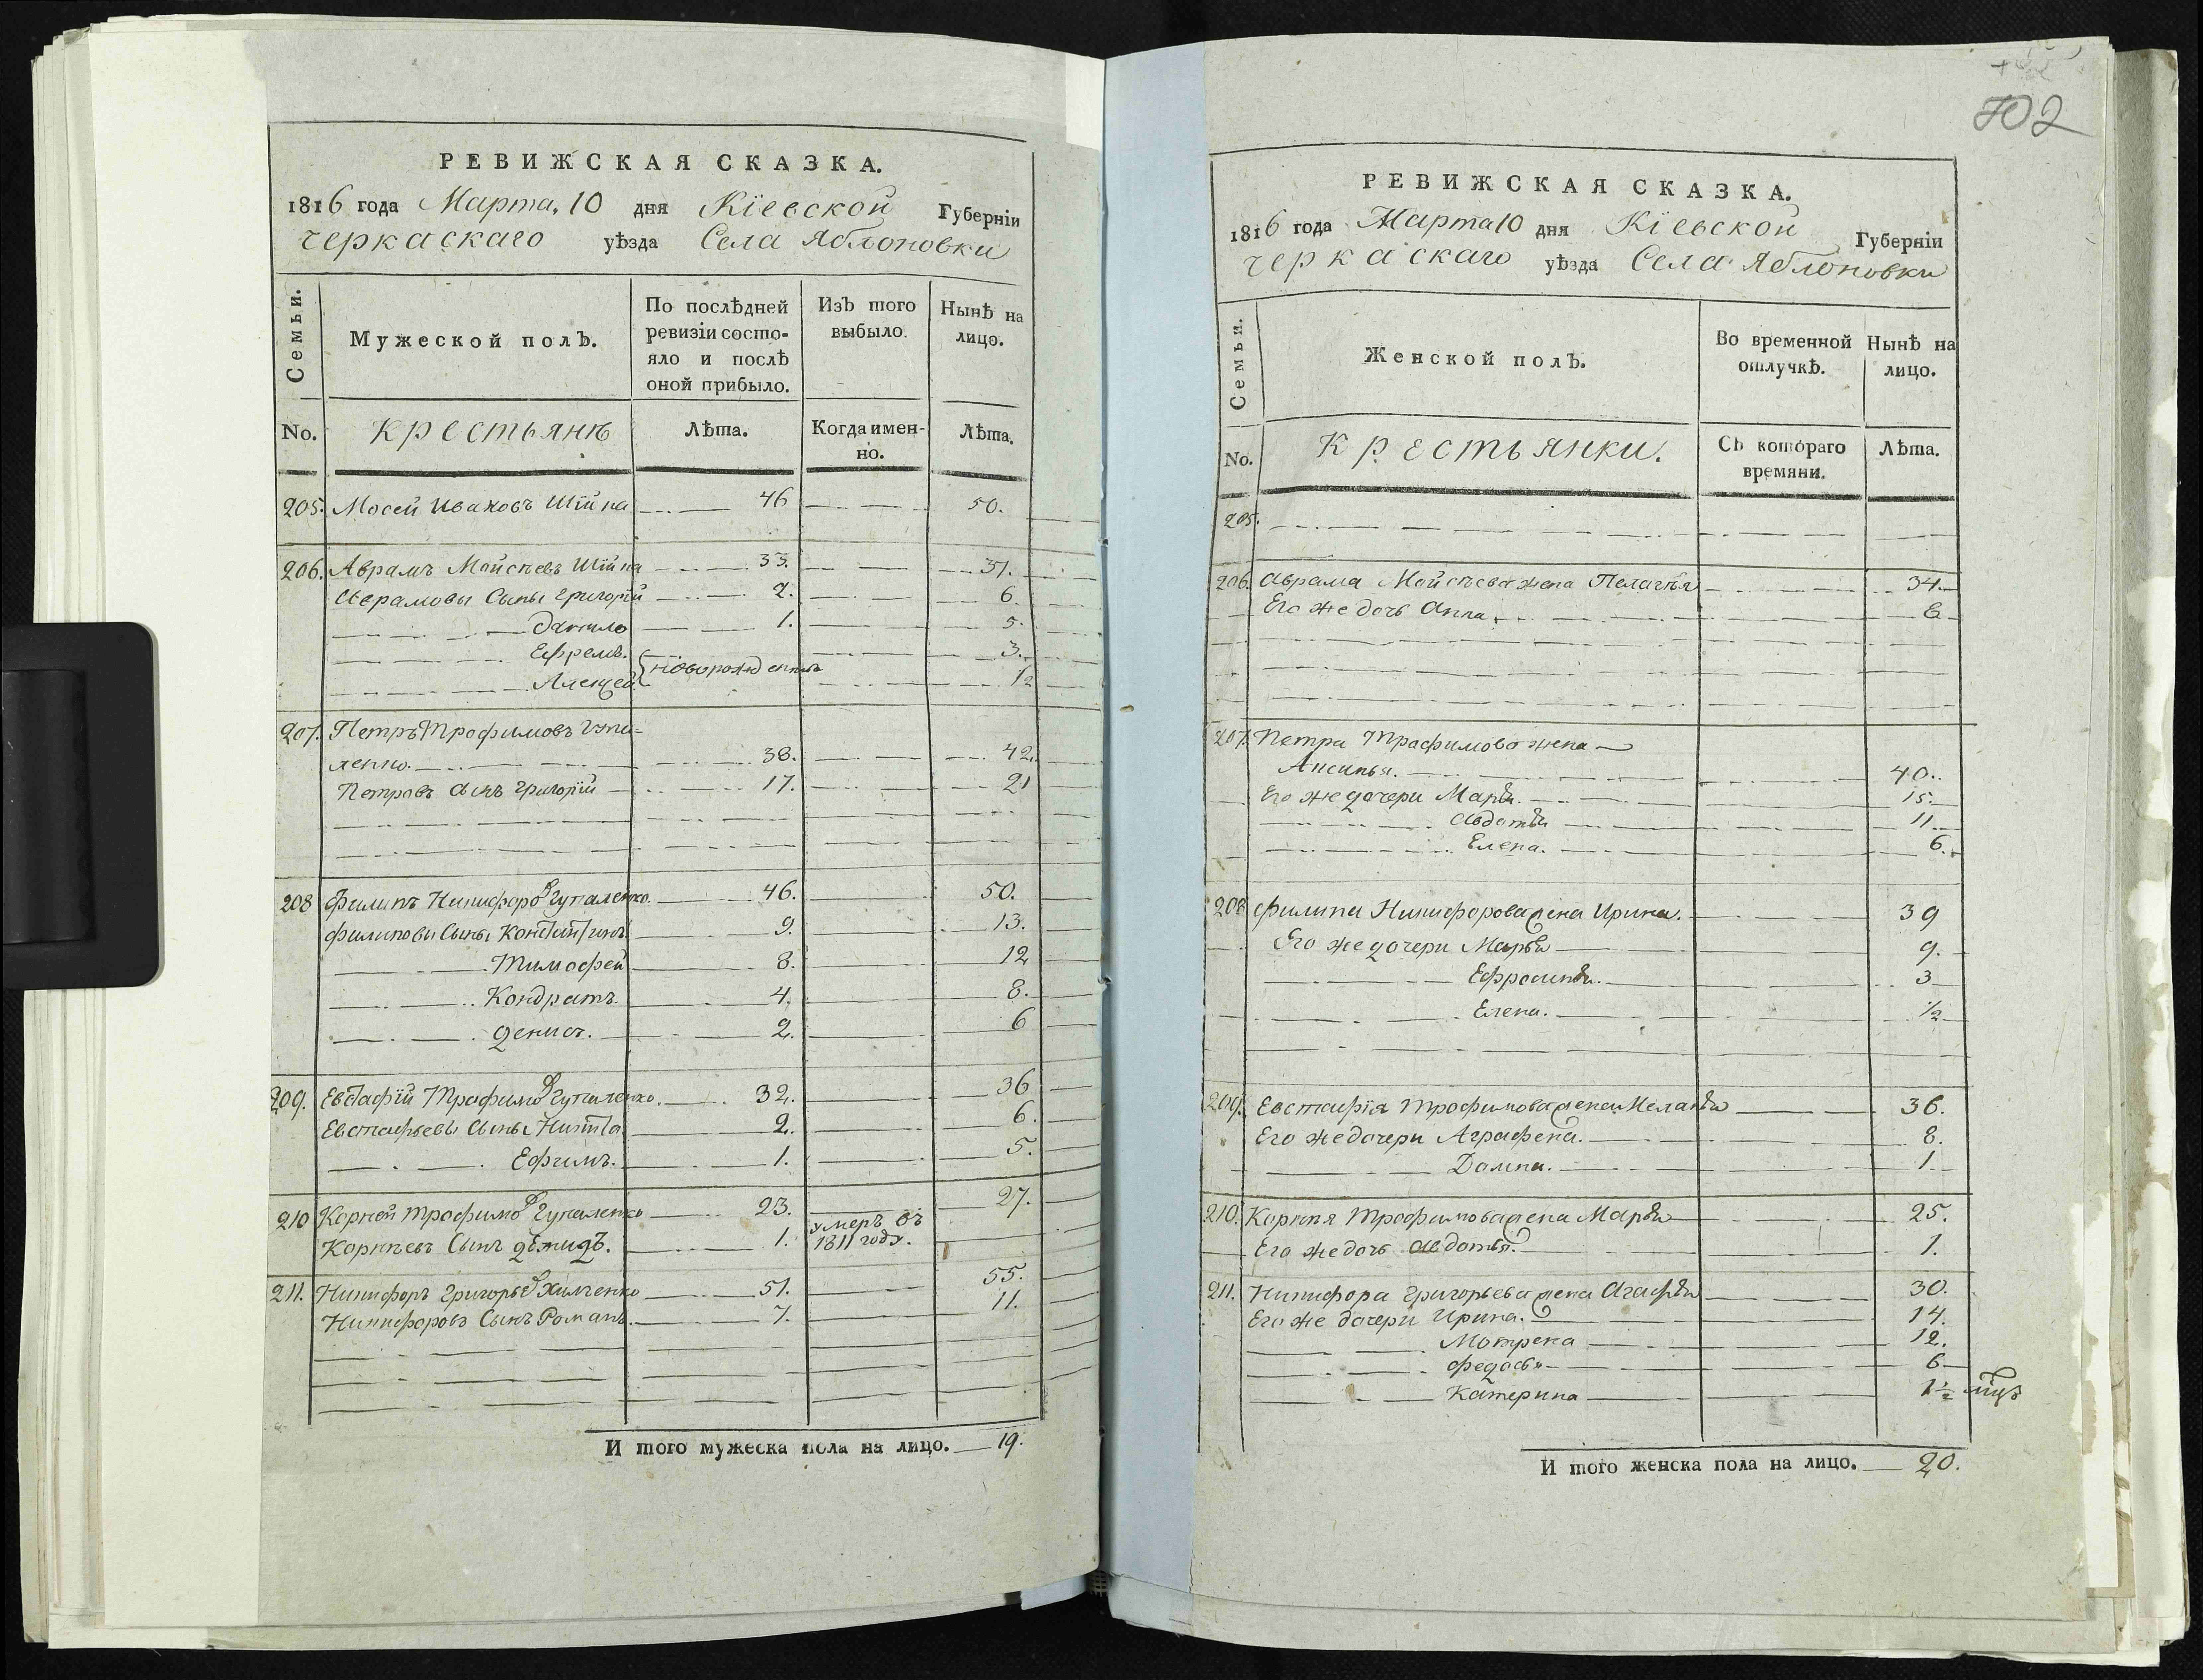 РЕВИЖСКАЯ СКАЗКА.
1816 года Марта, 10 дня Кіевской Губерніи
черкаскаго уѣзда Села Яблоновки
Семьи.
Мужеской полЪ.
По послѣдней ревизіи состо-
яло и послѣ
оной прибыло.
ИзЪ того выбыло.
Нынѣ на лицо.
No. крестьянѣ Лѣта. Когда имен-
но. Лѣта.
205. Мосей Ивановъ Шійка 46 50.
206. Аврамъ Мойсѣевъ Шійка 33. 37.
Аврамовы Сыны григорій 2. 6.
Данило 1. 5.
Ефремъ. 3.
новорожденны
Алексей 1/2
207. Петръ Трофимовъ
ленко. 38. 42.
Петровъ сынъ григорій 17. 21
208 филипъ Никифоровъ гупаленко. 46. 50.
филиповы Сыны Константинъ 9. 13.
Тимофей 8. 12
Кондратъ. 4. 8.
денисъ. 2. 6
209. Евстафій Трофимовъ гупаленко. 32. 36
Евстафьевы сыны Никита 2. 6.
Ефимъ. 1. 5.
210 Корней трофимовъ гупаленко 23. 27.
Корнѣевъ Сынъ демидъ. 1. умеръ въ
1811 году.
211. Никифоръ григорьевъ Химченко 51. 55.
Никифоровъ Сынъ Романъ. 7. 11.
И того мужеска пола на лицо. 19.
702
РЕВИЖСКАЯ СКАЗКА.
1816 года Марта 10 дня Кіевской Губерніи
черкаскаго уѣзда Села Яблоновки
Семьи.
Женской полЪ.
Во временной
отлучкѣ.
Нынѣ на
лицо.
No. крестьянки. СЪ котораго
времяни. Лѣта.
205.
206. Аврама Мойсѣева жена Пелагѣя 34.
Его же дочь Анна. 8
207. Петра Трофимова жена
Аксинья. 40.
Его же дочери Марья. 15.
Авдотья 11.
Елена. 6.
208 филипа Никифорова жена Ирина. 39
Его же дочери Марья 9.
Ефросинья. 3
Елена. 1/2
209. Евстафія трофимова жена Меланья 36.
Его же дочери Аграфена. 8.
Домна. 1.
210. Корнѣя Трофимова жена Марья 25.
Его же дочь Авдотья. 1.
211. Никифора григорьева жена Агафья 30.
Его же дочери Ирина. 14.
Мотрена 12.
федосья 6
Катерина 1 1/2 мцъ
И того женска пола на лицо. 20.